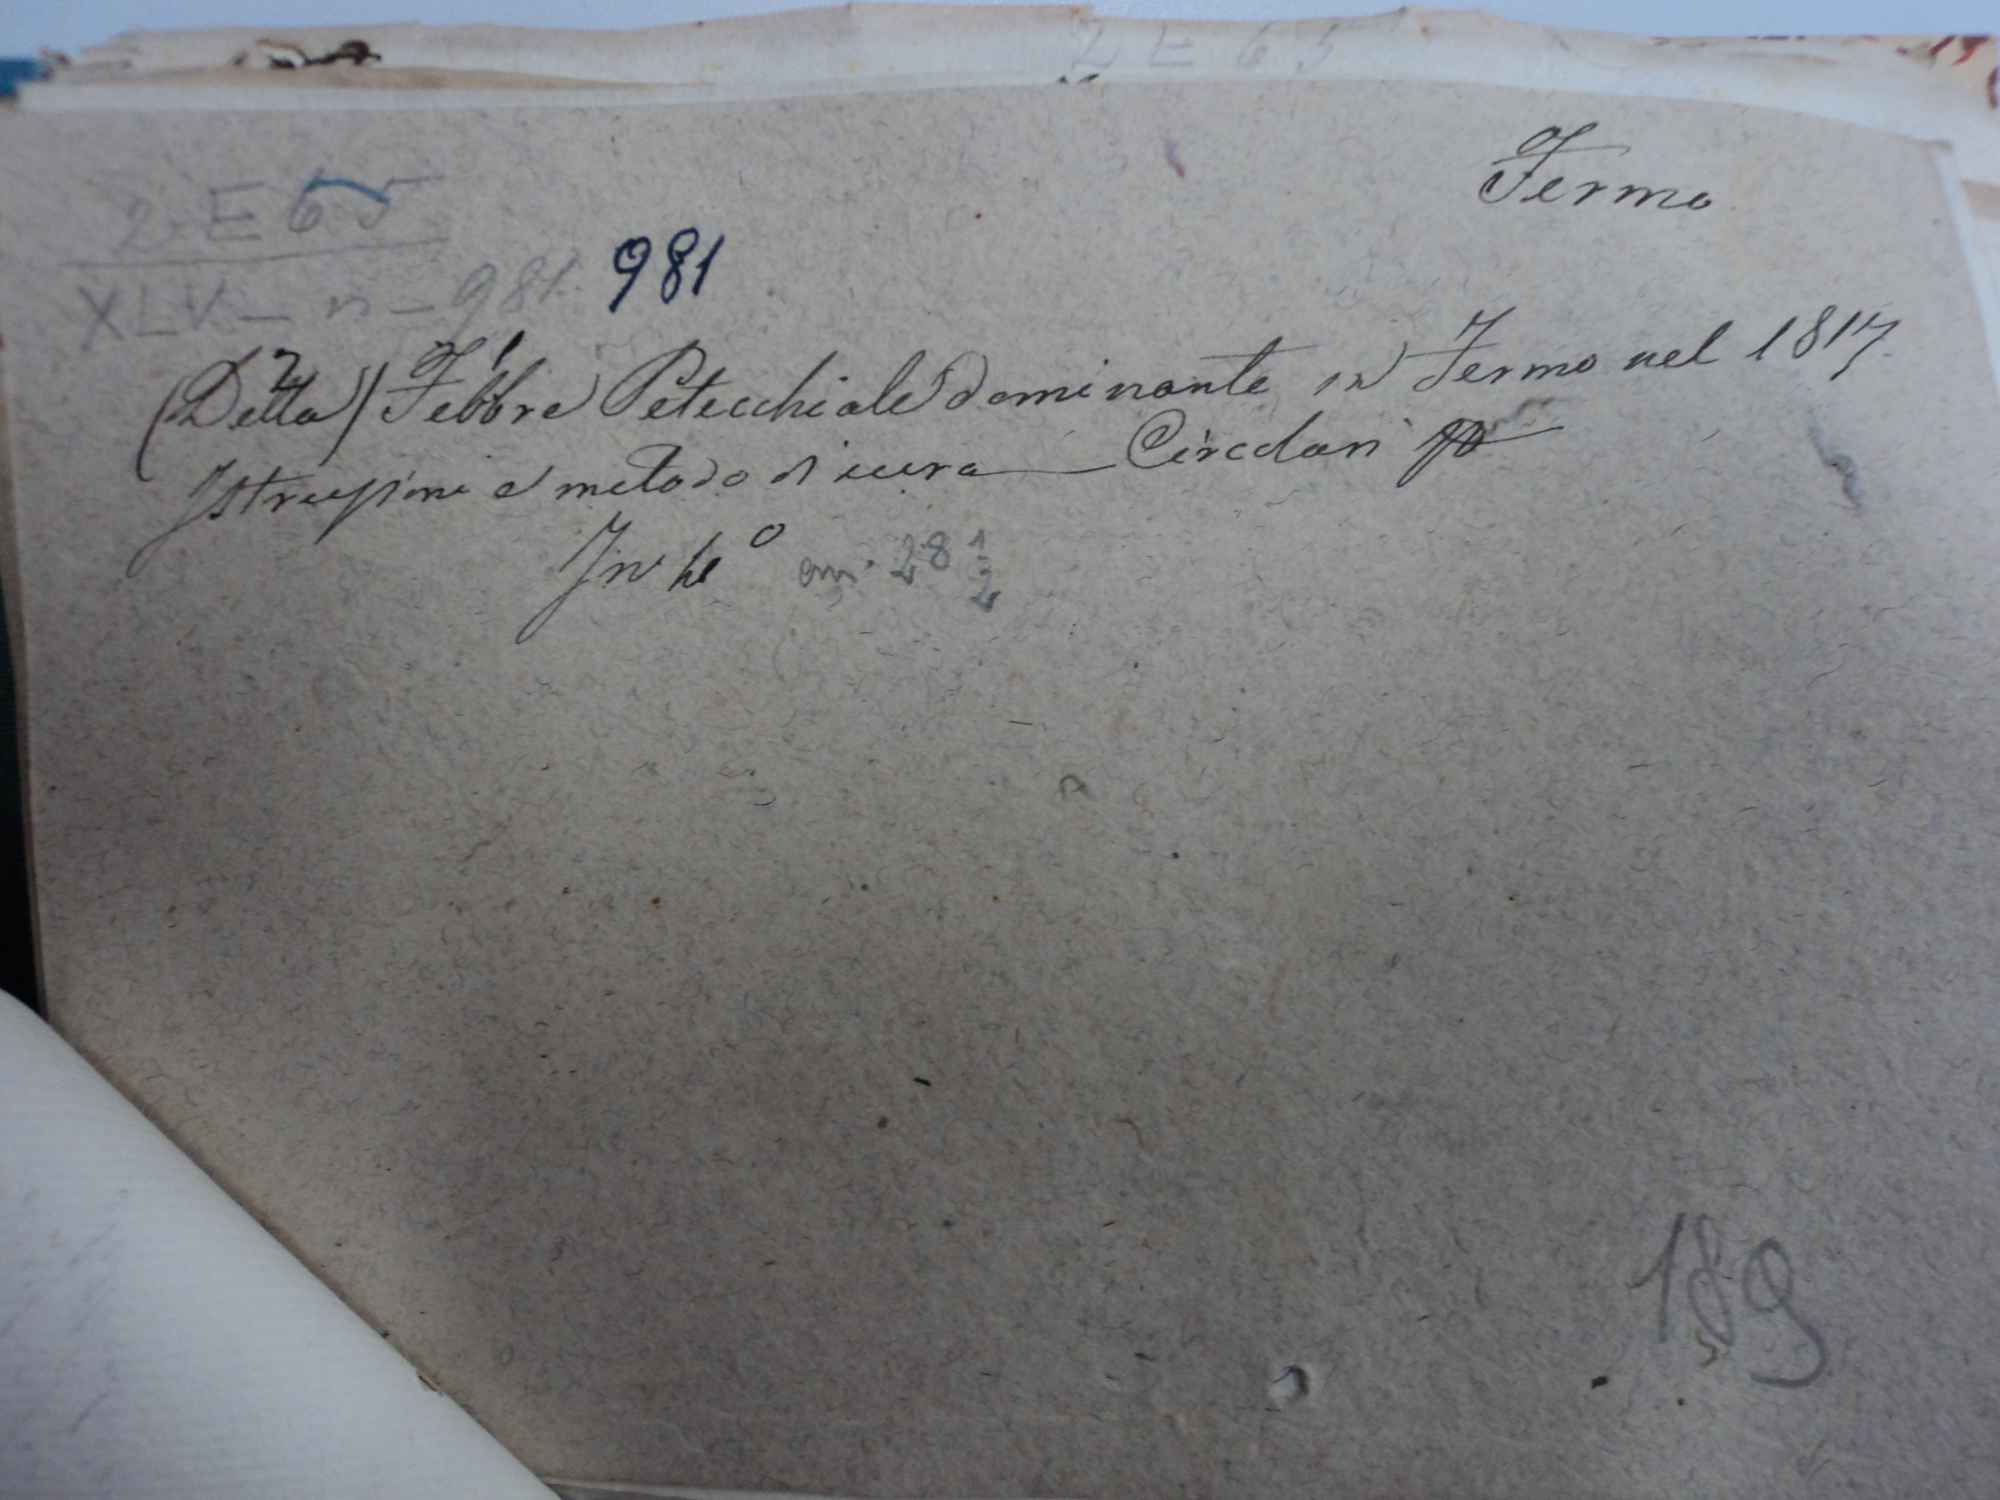 2 E 65
Fermo
2 E 65
XLV - n - 981. 981
2 1
(Della) Febbre Petecchiale dominante in Fermo nel 1817.
Istruzioni e metodo di cura — Circolari
In 4°
cm. 28 1/2
189